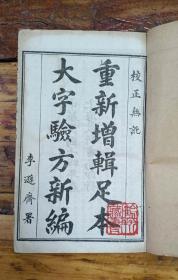 校正無訛
重新增輯足本
大字驗方新編
李遜齋署